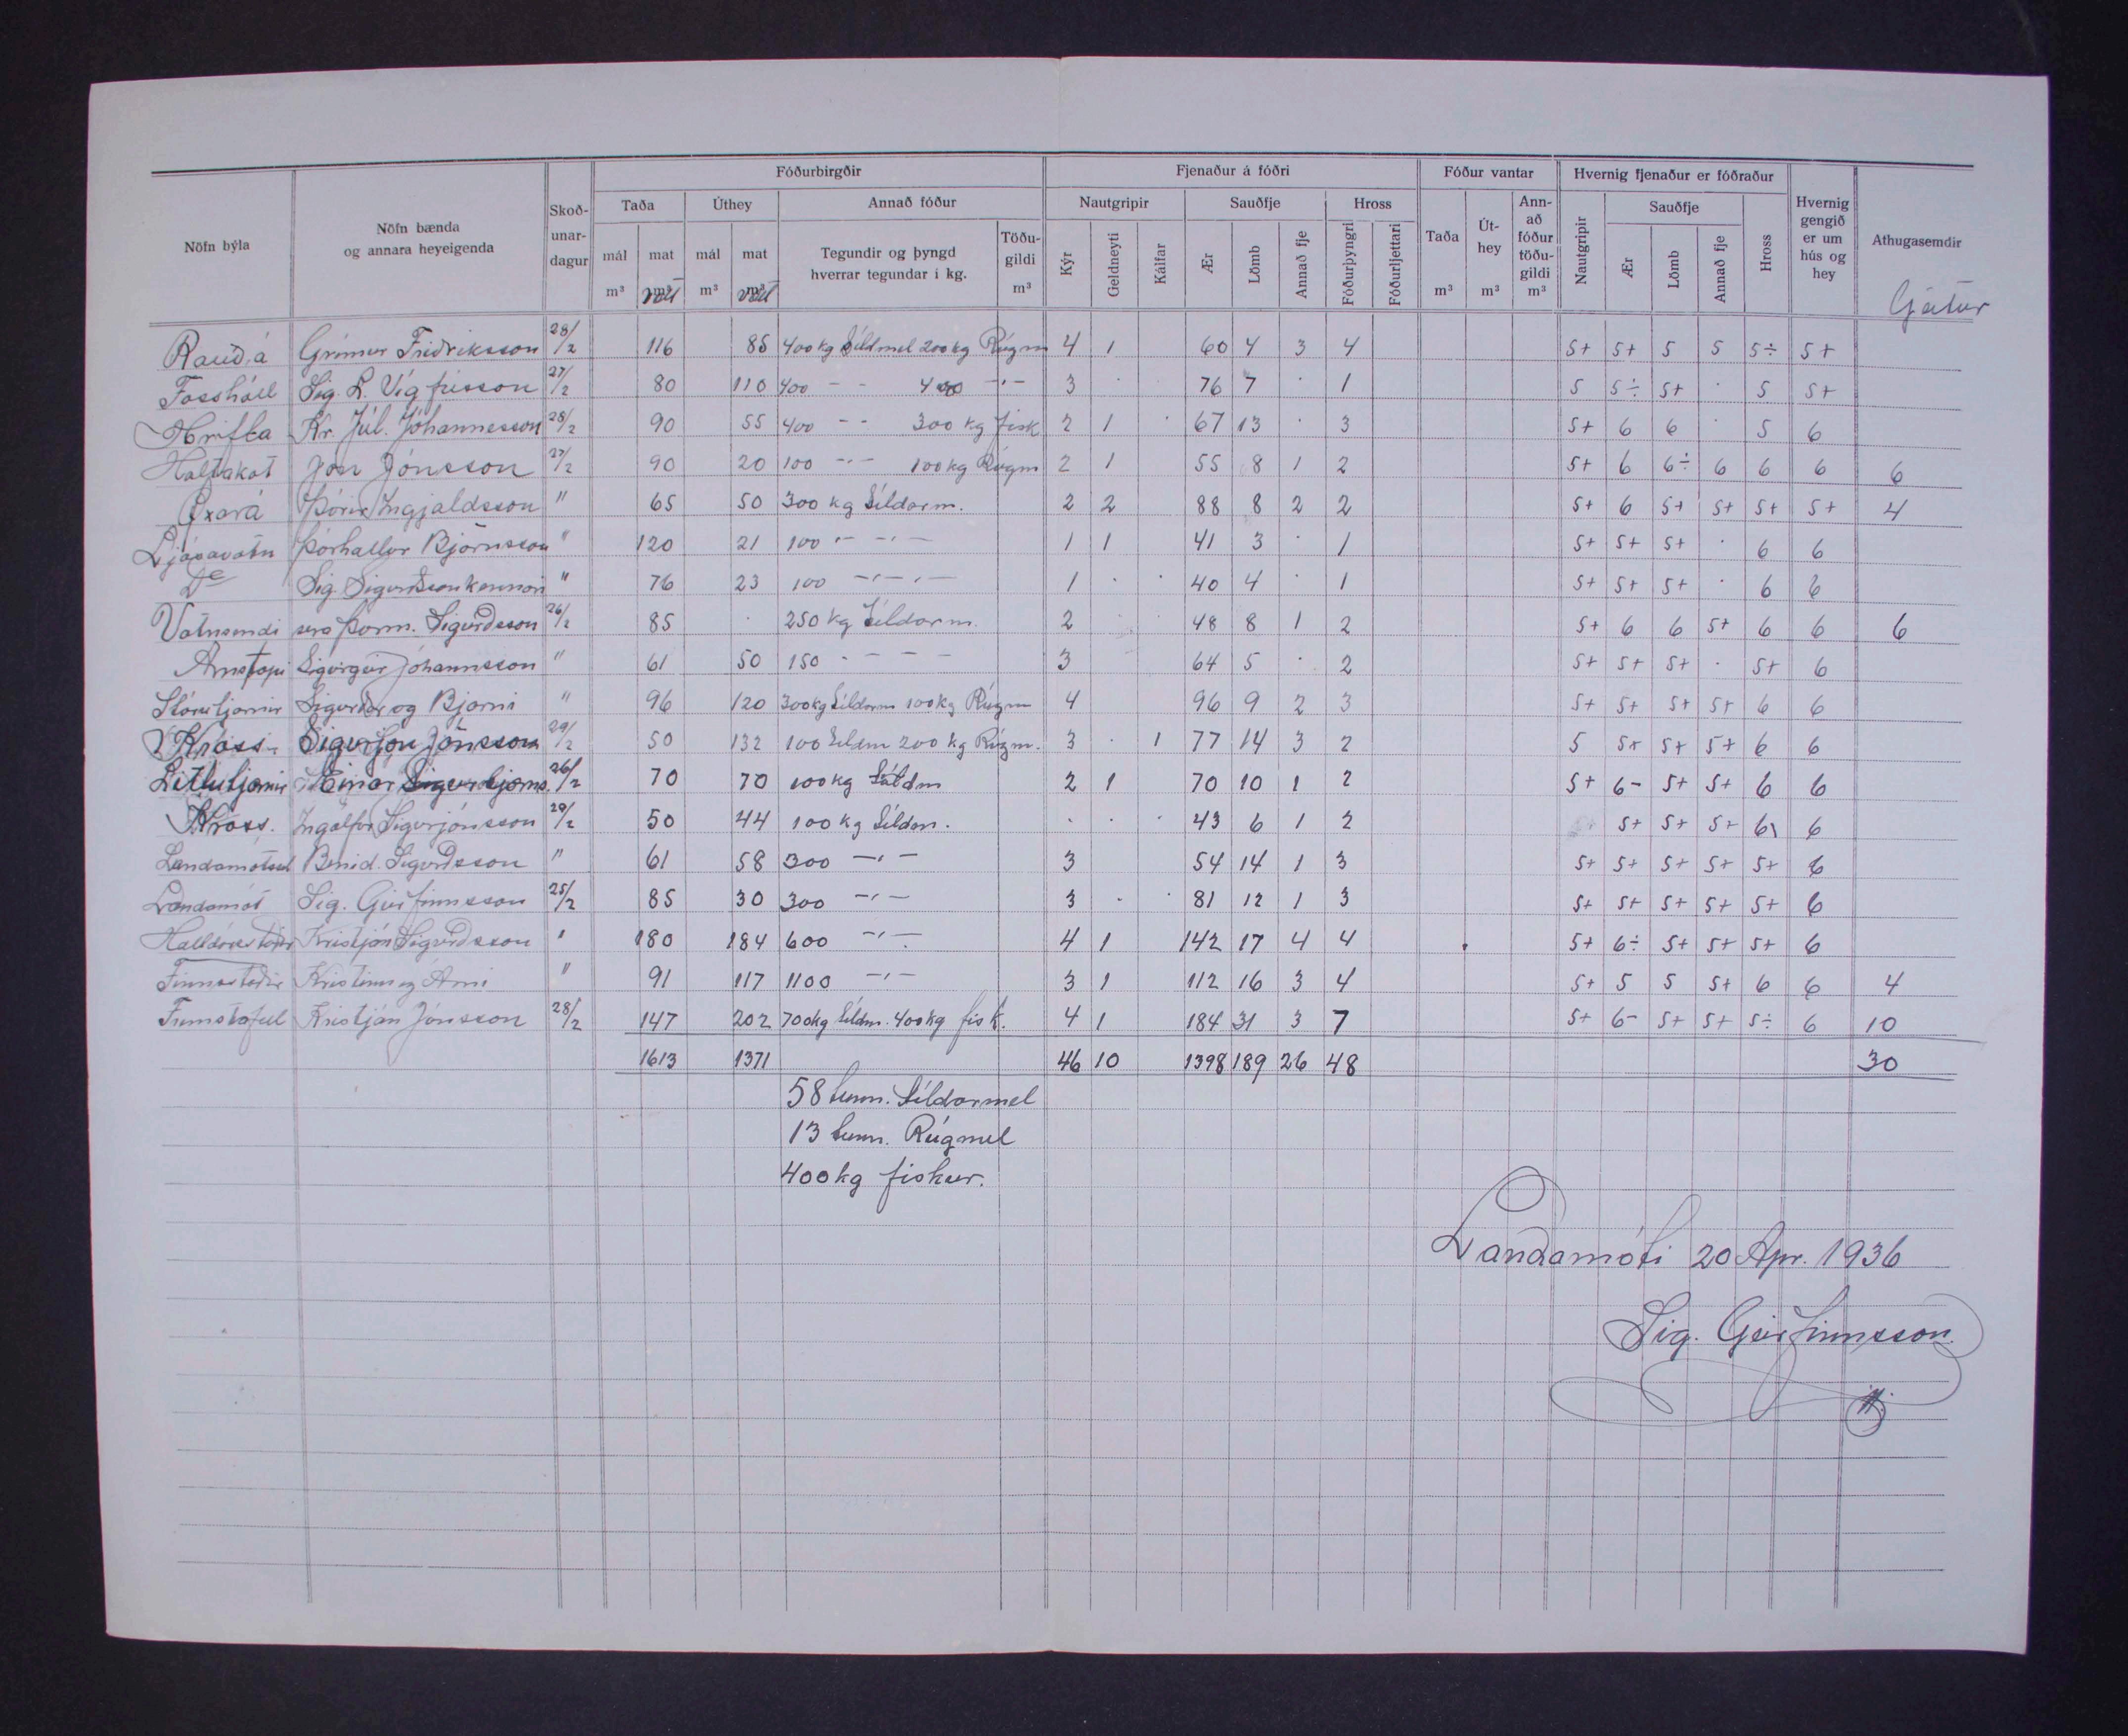 Fóðurbirgðir Fjenaður á fóðri Fóður vantar Hvernig fjenaður er fóðraður
Nöfn býla Nöfn bænda og annara heyeigenda Skoð-unar-dagur Taða Úthey Annað fóður Nautgripir Sauðfje Hross Taða Út-hey Ann-að fóður töðu-gildi Nautgripir Sauðfje Hross Hvernig gengið er um hús og hey Athugasemdir
mál mat mál mat Tegundir og þyngd hverrar tegundar í kg. Töðu-gildi Kýr Geldneyti Kálfar Ær Lömb Annað fje Fóðurþyngri Fóðurljettari Ær Lömb Annað fje
m³ m³ m³ m³ m³ m³ m³ m³ Gjetur
Rauðá Grímur Friðriksson 28/2 116 85 400 kg Síldmel 200 kg Rúgm 4 1 60 4 3 4 5+ 5+ 5 5 5÷ 5+
Fosshóll Sig. L. Vigfússon 27/2 80 110 400 - - 400 -"- 3 · 76 7 · 1 5 5÷ 5+ · 5 5+
Hrifla Kr. Júl. Jóhannesson 28/2 90 55 400 - - 300 kg fisk 2 1 · 67 13 · 3 5+ 6 6 · 5 6
Holtakot Jón Jónsson 27/2 90 20 100 -"- 100 kg Rúgm 2 1 55 8 1 2 5+ 6 6÷ 6 6 6 6
Öxará Þórir Ingjaldsson " 65 50 300 kg Síldarm. 2 2 88 8 2 2 5+ 6 5+ 5+ 5+ 5+ 4
Ljósavatn Þórhallur Björnsson " 120 21 100 -"-"- 1 1 41 3 · 1 5+ 5+ 5+ · 6 6
Do Sig. Sigurðsson kennari " 76 23 100 -"-"- 1 · · 40 4 · 1 5+ 5+ 5+ · 6 6
Vatnsendi sera Þorm. Sigurðsson 26/2 85 · 250 kg Síldarm. 2 · 48 8 1 2 5+ 6 6 5+ 6 6 6
Arnstapi Sigurgeir Jóhannsson " 61 50 150 - - - - 3 64 5 · 2 5+ 5+ 5+ · 5+ 6
Stórutjarnir Sigurður og Bjarni " 96 120 300 kg Síldarm 100 kg Rúgm 4 96 9 2 3 5+ 5+ 5+ 5+ 6 6
Kross Sigurjón Jónsson 29/2 50 132 100 Síldm 200 kg Rúgm. 3 · 1 77 14 3 2 5 5+ 5+ 5+ 6 6
Litlutjarnir Einar Sigurbjörns. 26/2 70 70 100 kg Síldm 2 1 70 10 1 2 5+ 6- 5+ 5+ 6 6
Kross. Ingólfur Sigurjónsson 29/2 50 44 100 kg Síldm. · · · 43 6 1 2 5+ 5+ 5+ 6 6
Landamótssel Benid. Sigurðsson " 61 58 300 -"- 3 54 14 1 3 5+ 5+ 5+ 5+ 5+ 6
Landamót Sig. Geirfinnsson 25/2 85 30 300 -"- 3 · · 81 12 1 3 5+ 5+ 5+ 5+ 5+ 6
Halldórsstaðir Kristján Sigurðsson " 180 184 600 -"- 4 1 142 17 4 4 5+ 6÷ 5+ 5+ 5+ 6
Finnsstaðir Kristinn og Árni " 91 117 1100 -"- 3 1 112 16 3 4 5+ 5 5 5+ 6 6 4
Kristján Jónsson 28/2 147 202 700 kg Síldm. 400 kg fisk. 4 1 184 31 3 7 5+ 6- 5+ 5+ 5÷ 6 10
1613 1371 46 10 1398 189 26 48 30
58 tunn. Síldarmel
13 tunn. Rúgmel
400 kg fiskur.
Landamóti 20 Apr. 1936
Sig. Geirfinnsson.